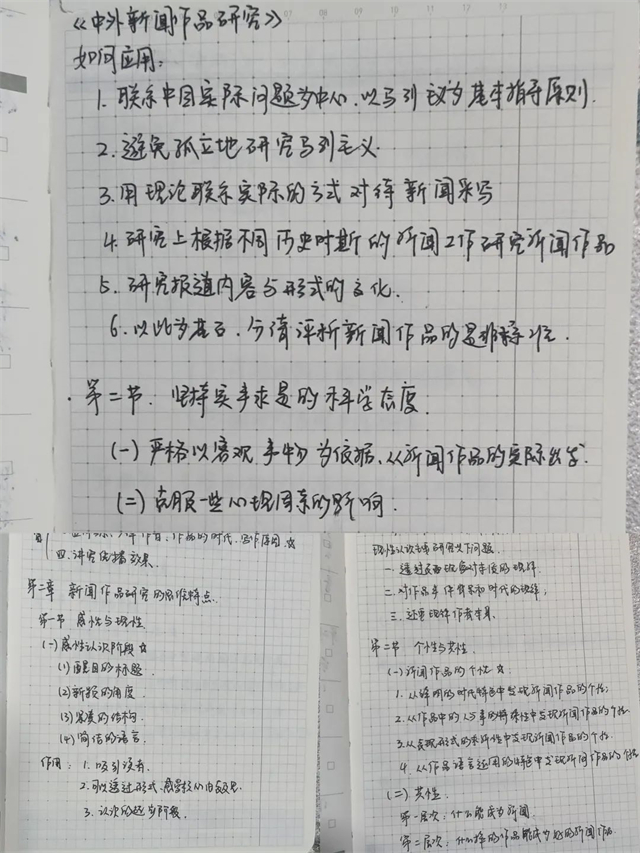 《中外新闻作品研究》
如何应用：
1. 联系中国实际问题为中心，以马列主义为基本指导原则.
2. 避免孤立地研究马列主义.
3. 用理论联系实际的方式对待新闻采写
4. 研究上根据不同历史时期的新闻工作研究新闻作品
5. 研究报道内容与形式的变化.
6. 以此为基石，分清评析新闻作品的是非
第二节. 坚持实事求是的科学态度.
(一) 严格以客观事物为依据、从新闻作品的实际出发.
(二) 克服一些心理因素的影响.
作品的时代、写作原因. ☆
四. 讲究传播效果.
第二章 新闻作品研究的思维特点.
第一节 感性与理性.
(一) 感性认识阶段 ☆
(1) 醒目的标题.
(2) 新颖的角度.
(3) 的结构.
(4) 简洁的语言.
作用： 1. 吸引读者.
2. 可以透过形式、
3. 认识的起步阶段.
理性认识主要研究以下问题.
一. 透过表面现象对本质的理解.
二. 对作品事件背景和时代的理解；
三. 还要理解作者本身.
第二节 个性与共性.
(一) 新闻作品的个性 ☆.
1. 从鲜明的时代特色中发现新闻作品的个性;
2. 从作品中的人与事的特殊性中发现新闻作品的个性
3. 从表现形式的多样性中发现新闻作品的个性.
4. 从作品语言运用的特色中发现新闻作品的个性
(二) 共性.
第一层次：什么能成为新闻.
第二层次：什么样的作品能成为好的新闻作品